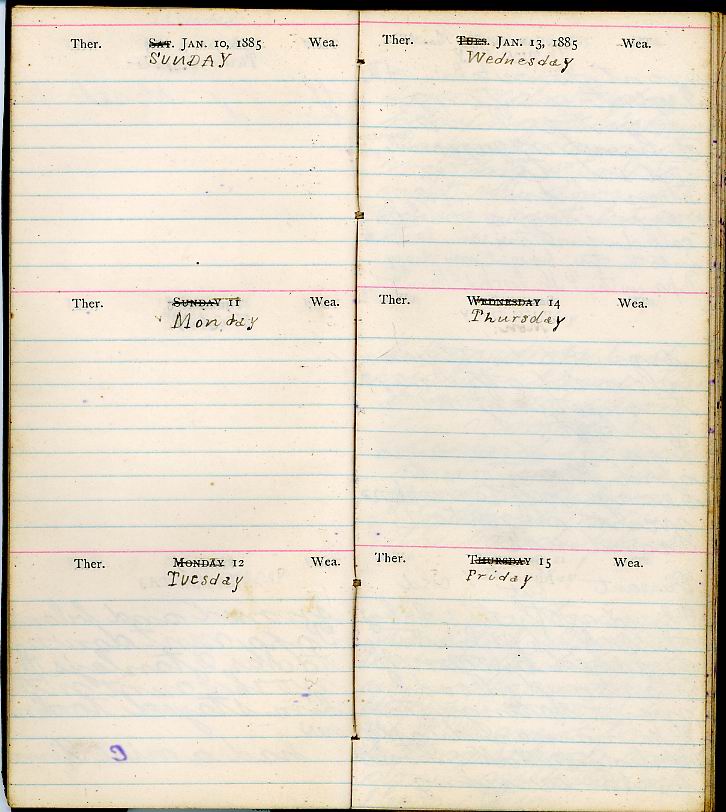 Ther. SAT. JAN. 10, 1885 Wea.
SUNDAY
Ther. SUNDAY 11 Wea.
Monday
Ther. MONDAY 12 Wea.
Tuesday
Ther. TUES. JAN. 13, 1885 Wea.
Wednesday
Ther. WEDNESDAY 14 Wea.
Thursday
Ther. THURSDAY 15 Wea.
Friday